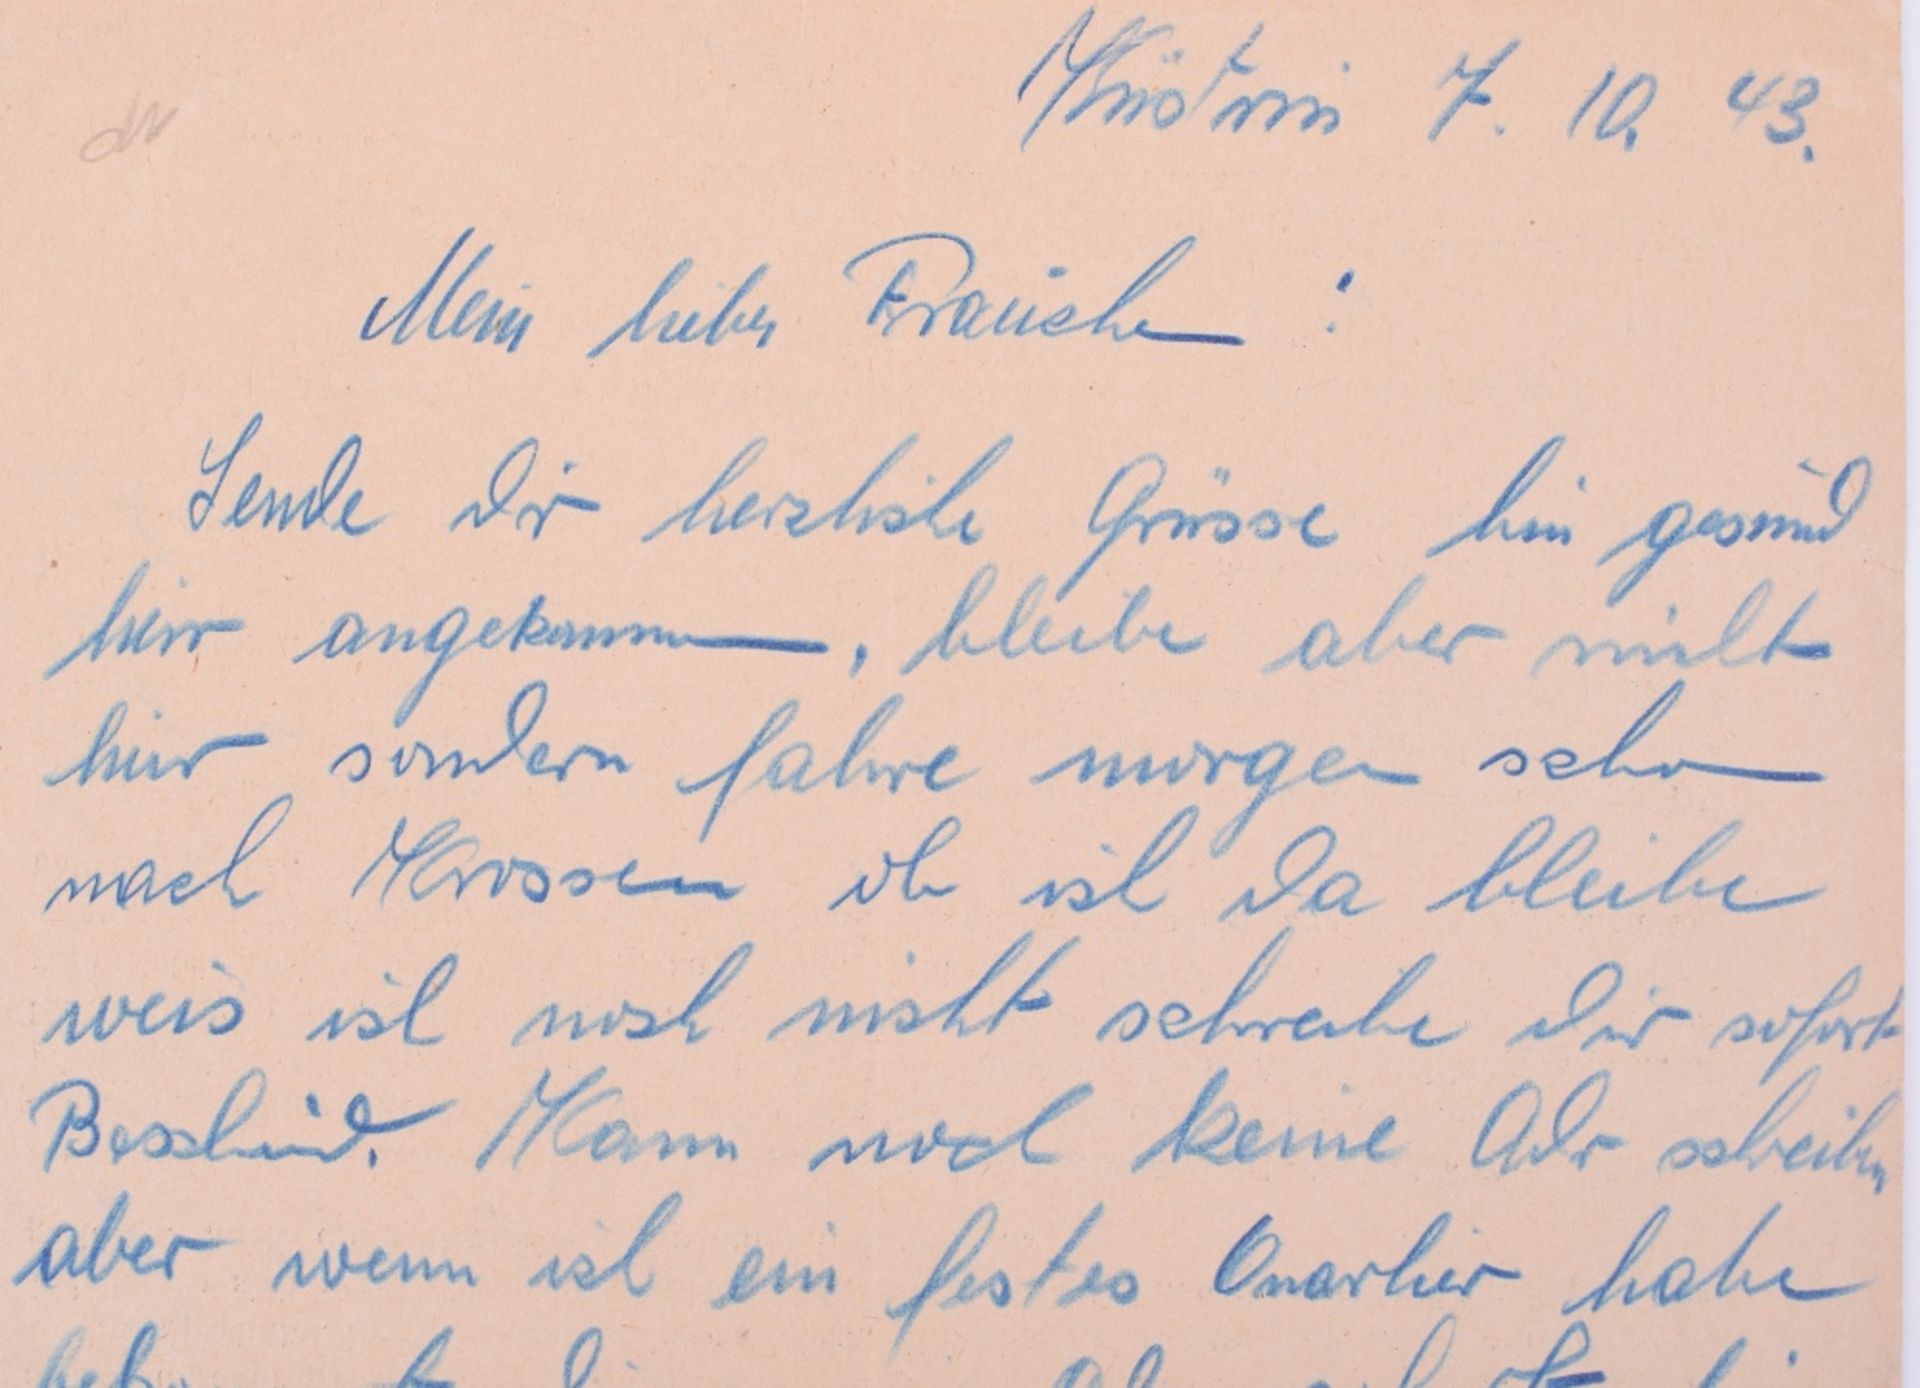 Küstrin 7. 10. 43.
Mein liebes Frauchen :
Sende dir herzliche Grüsse bin gesund
hier angekommen, bleibe aber nicht
hier sondern fahre morgen schon
nach Krossen ob ich da bleibe
weis ich noch nicht schreibe dir sofort
Bescheid. Kann noch keine Adr schreiben
aber wenn ich ein festes Quartier habe